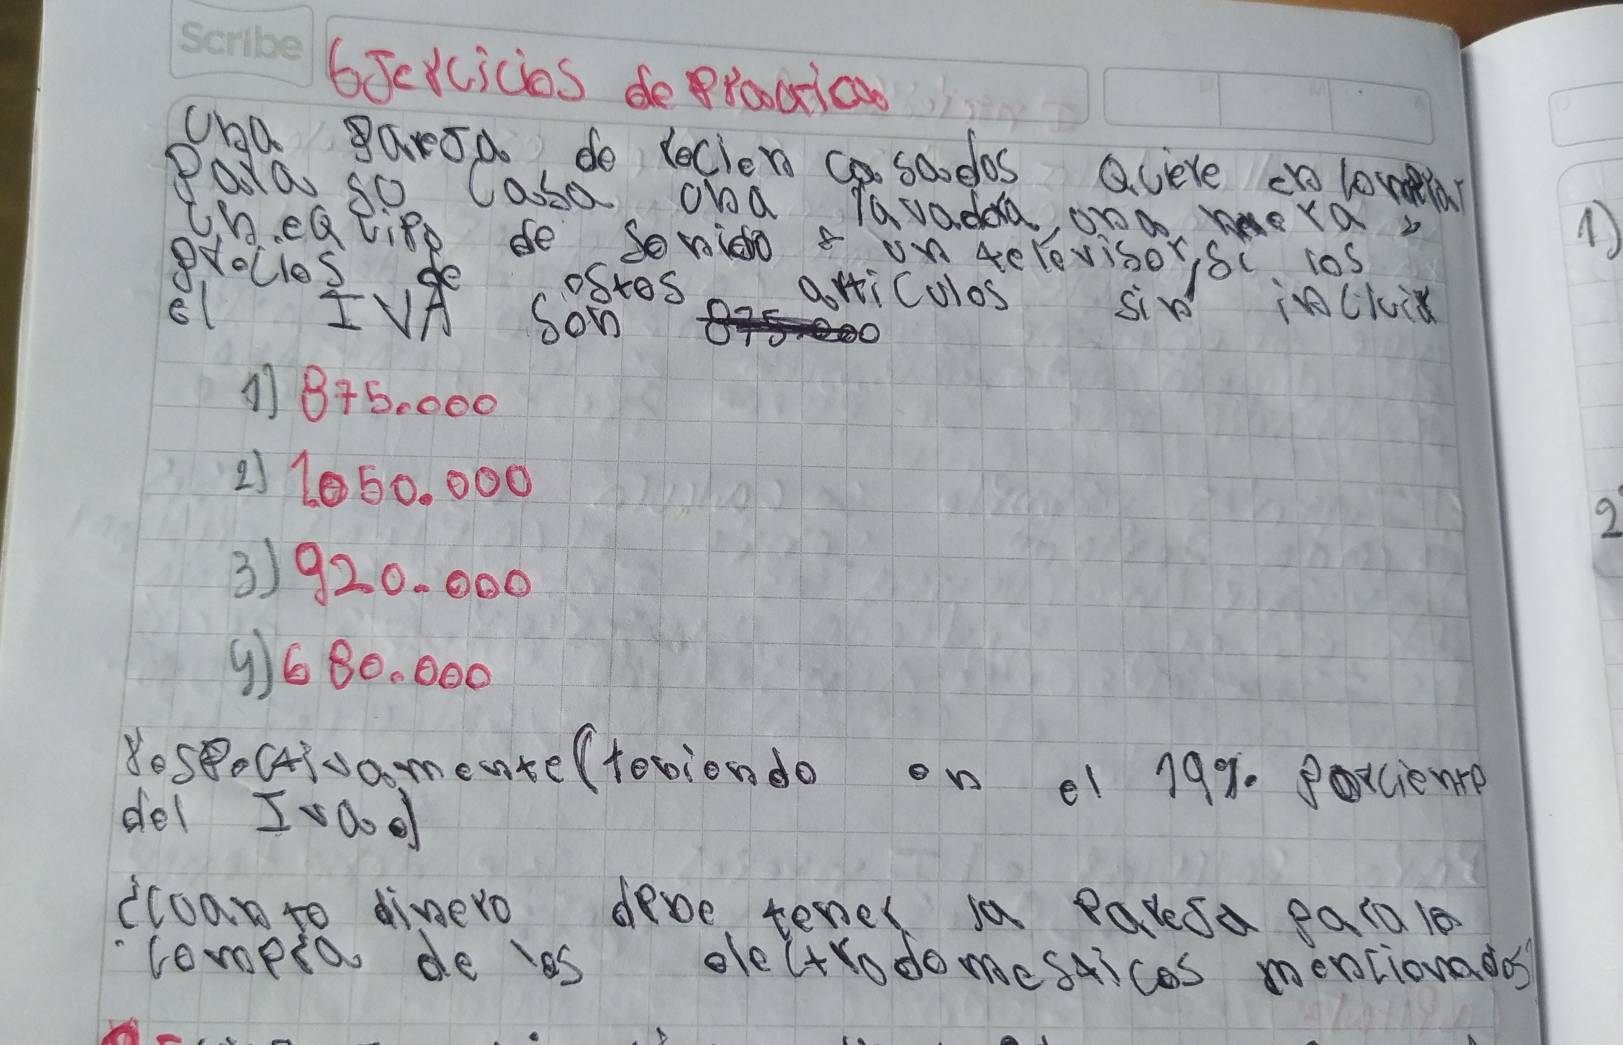 Scribe
EJercicios de Practica
Una pareJa de recien casados Quiere en comprar
Para so Casa ona lavadora, ona nevera,
Un.eQuipo de Sonido & un televisor, Si los
precios de estos articulos sin incluir
el IVA Son 875.000
1) 875.000
2) 1050.000
3) 920.000
4) 680.000
respectivamente (teniendo en el 19% porciento
del Iva.)
¿Cuanto dinero deve tener la PareJa para la
compra de los electrodomesticos mencionados
1)
2